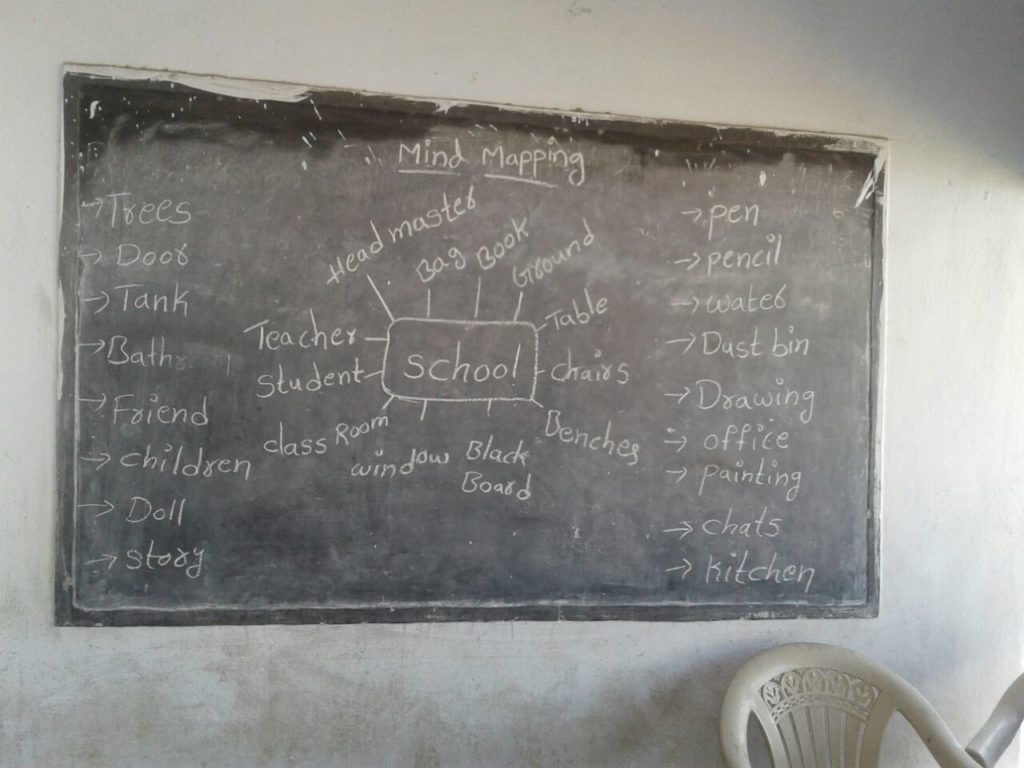 Mind Mapping
→Trees
→ Door
→Tank
→Bathroom
→Friend
→ children
→ Doll
→ story
Head master
Bag
Book
Ground
Table
Teacher
school
chairs
student
class Room
window
Black
Board
Benches
→ pen
→ pencil
→ water
→ Dust bin
→ Drawing
→ office
→ painting
→ chats
→ kitchen